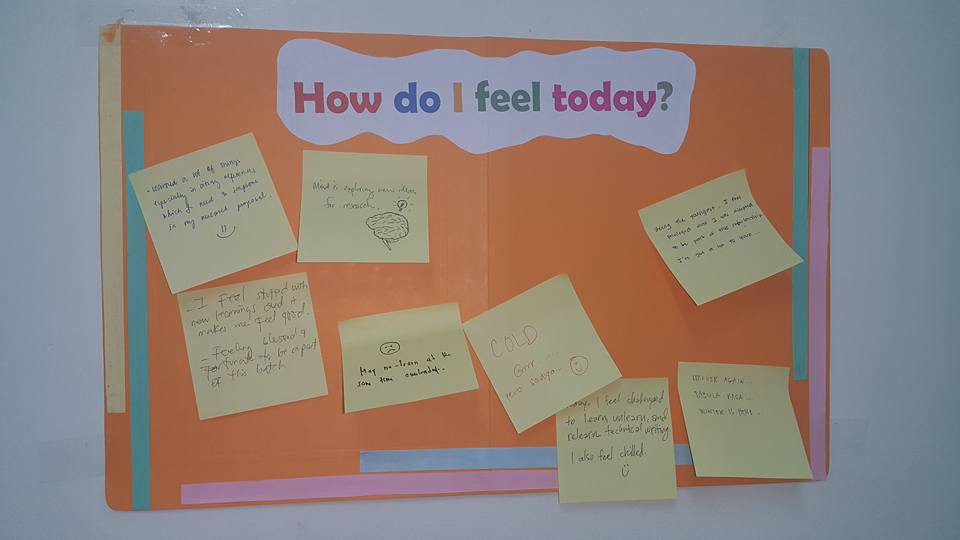 How do I feel today?
- Learned a lot of things
especially in citing references
which I need to improve
in my research proposal.
Mind is exploring new ideas
for research.
Being the youngest... I feel
privileged since I was accepted
to be part of this scholarship
I've got a lot to learn...
- I Feel stuffed with
new learnings and it
makes me feel good.
- Feeling blessed &
fortunate to be a part
of this batch
May na-learn at the
same time overloaded..
COLD
Grrr ....
today, I feel challenged
to learn, unlearn, and
relearn technical writing.
I also feel chilled.
AGAIN...
TABULA RASA...
WINTER IS HERE...